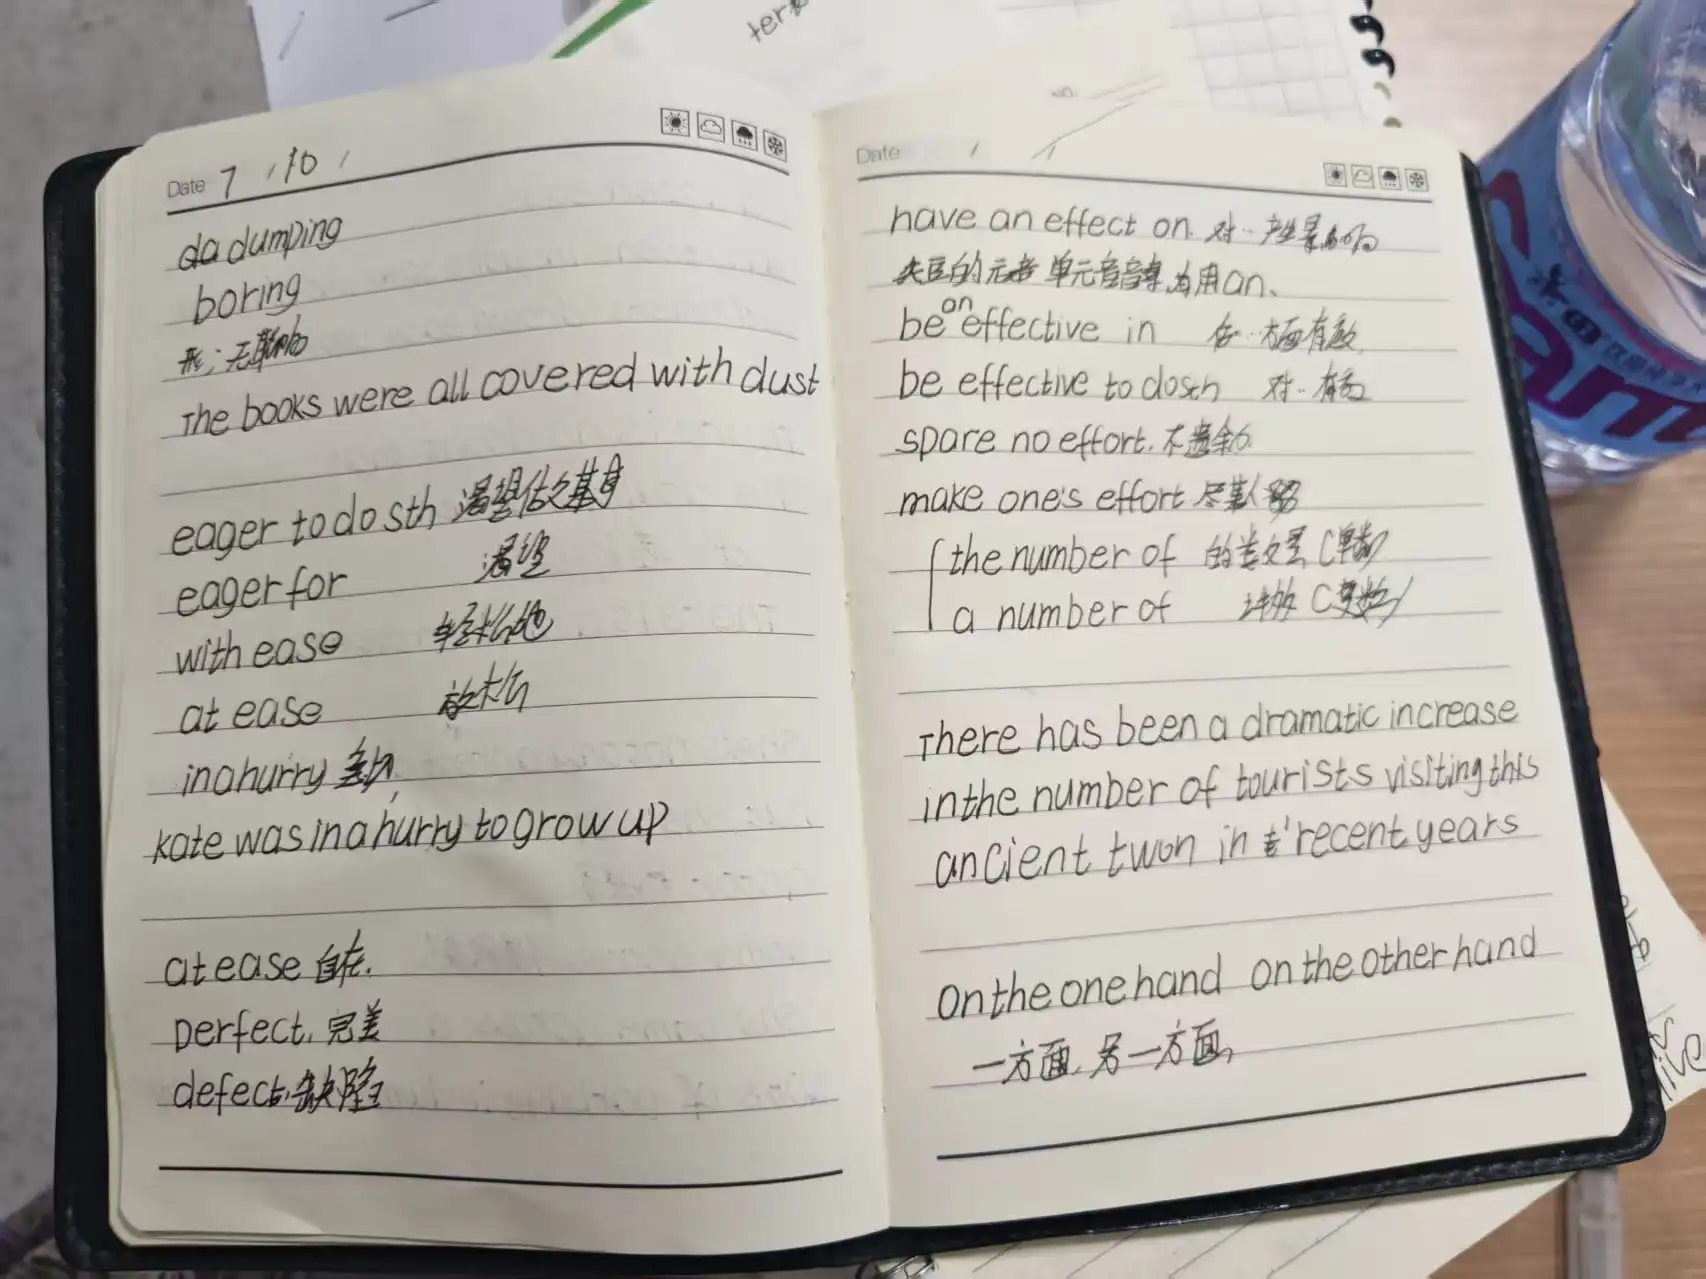 Date 7 / 10 /
da dumping
boring
形；无聊的
The books were all covered with dust
eager to do sth 渴望做某事
eager for 渴望
with ease 轻松地
at ease 放松
in a hurry
Kate was in a hurry to grow up
at ease 自在.
Perfect. 完美
defect. 缺陷
Date / /
have an effect on. 对…产生影响
单元音音 用an、
be an effective in 在…方面有效
be effective to do sth 对…有效
spare no effort. 不遗余力.
make one's effort
the number of 的 C单数)
a number of 许多 C复数)
There has been a dramatic increase
in the number of tourists visiting this
ancient twon in recent years
On the one hand on the other hand
一方面, 另一方面,